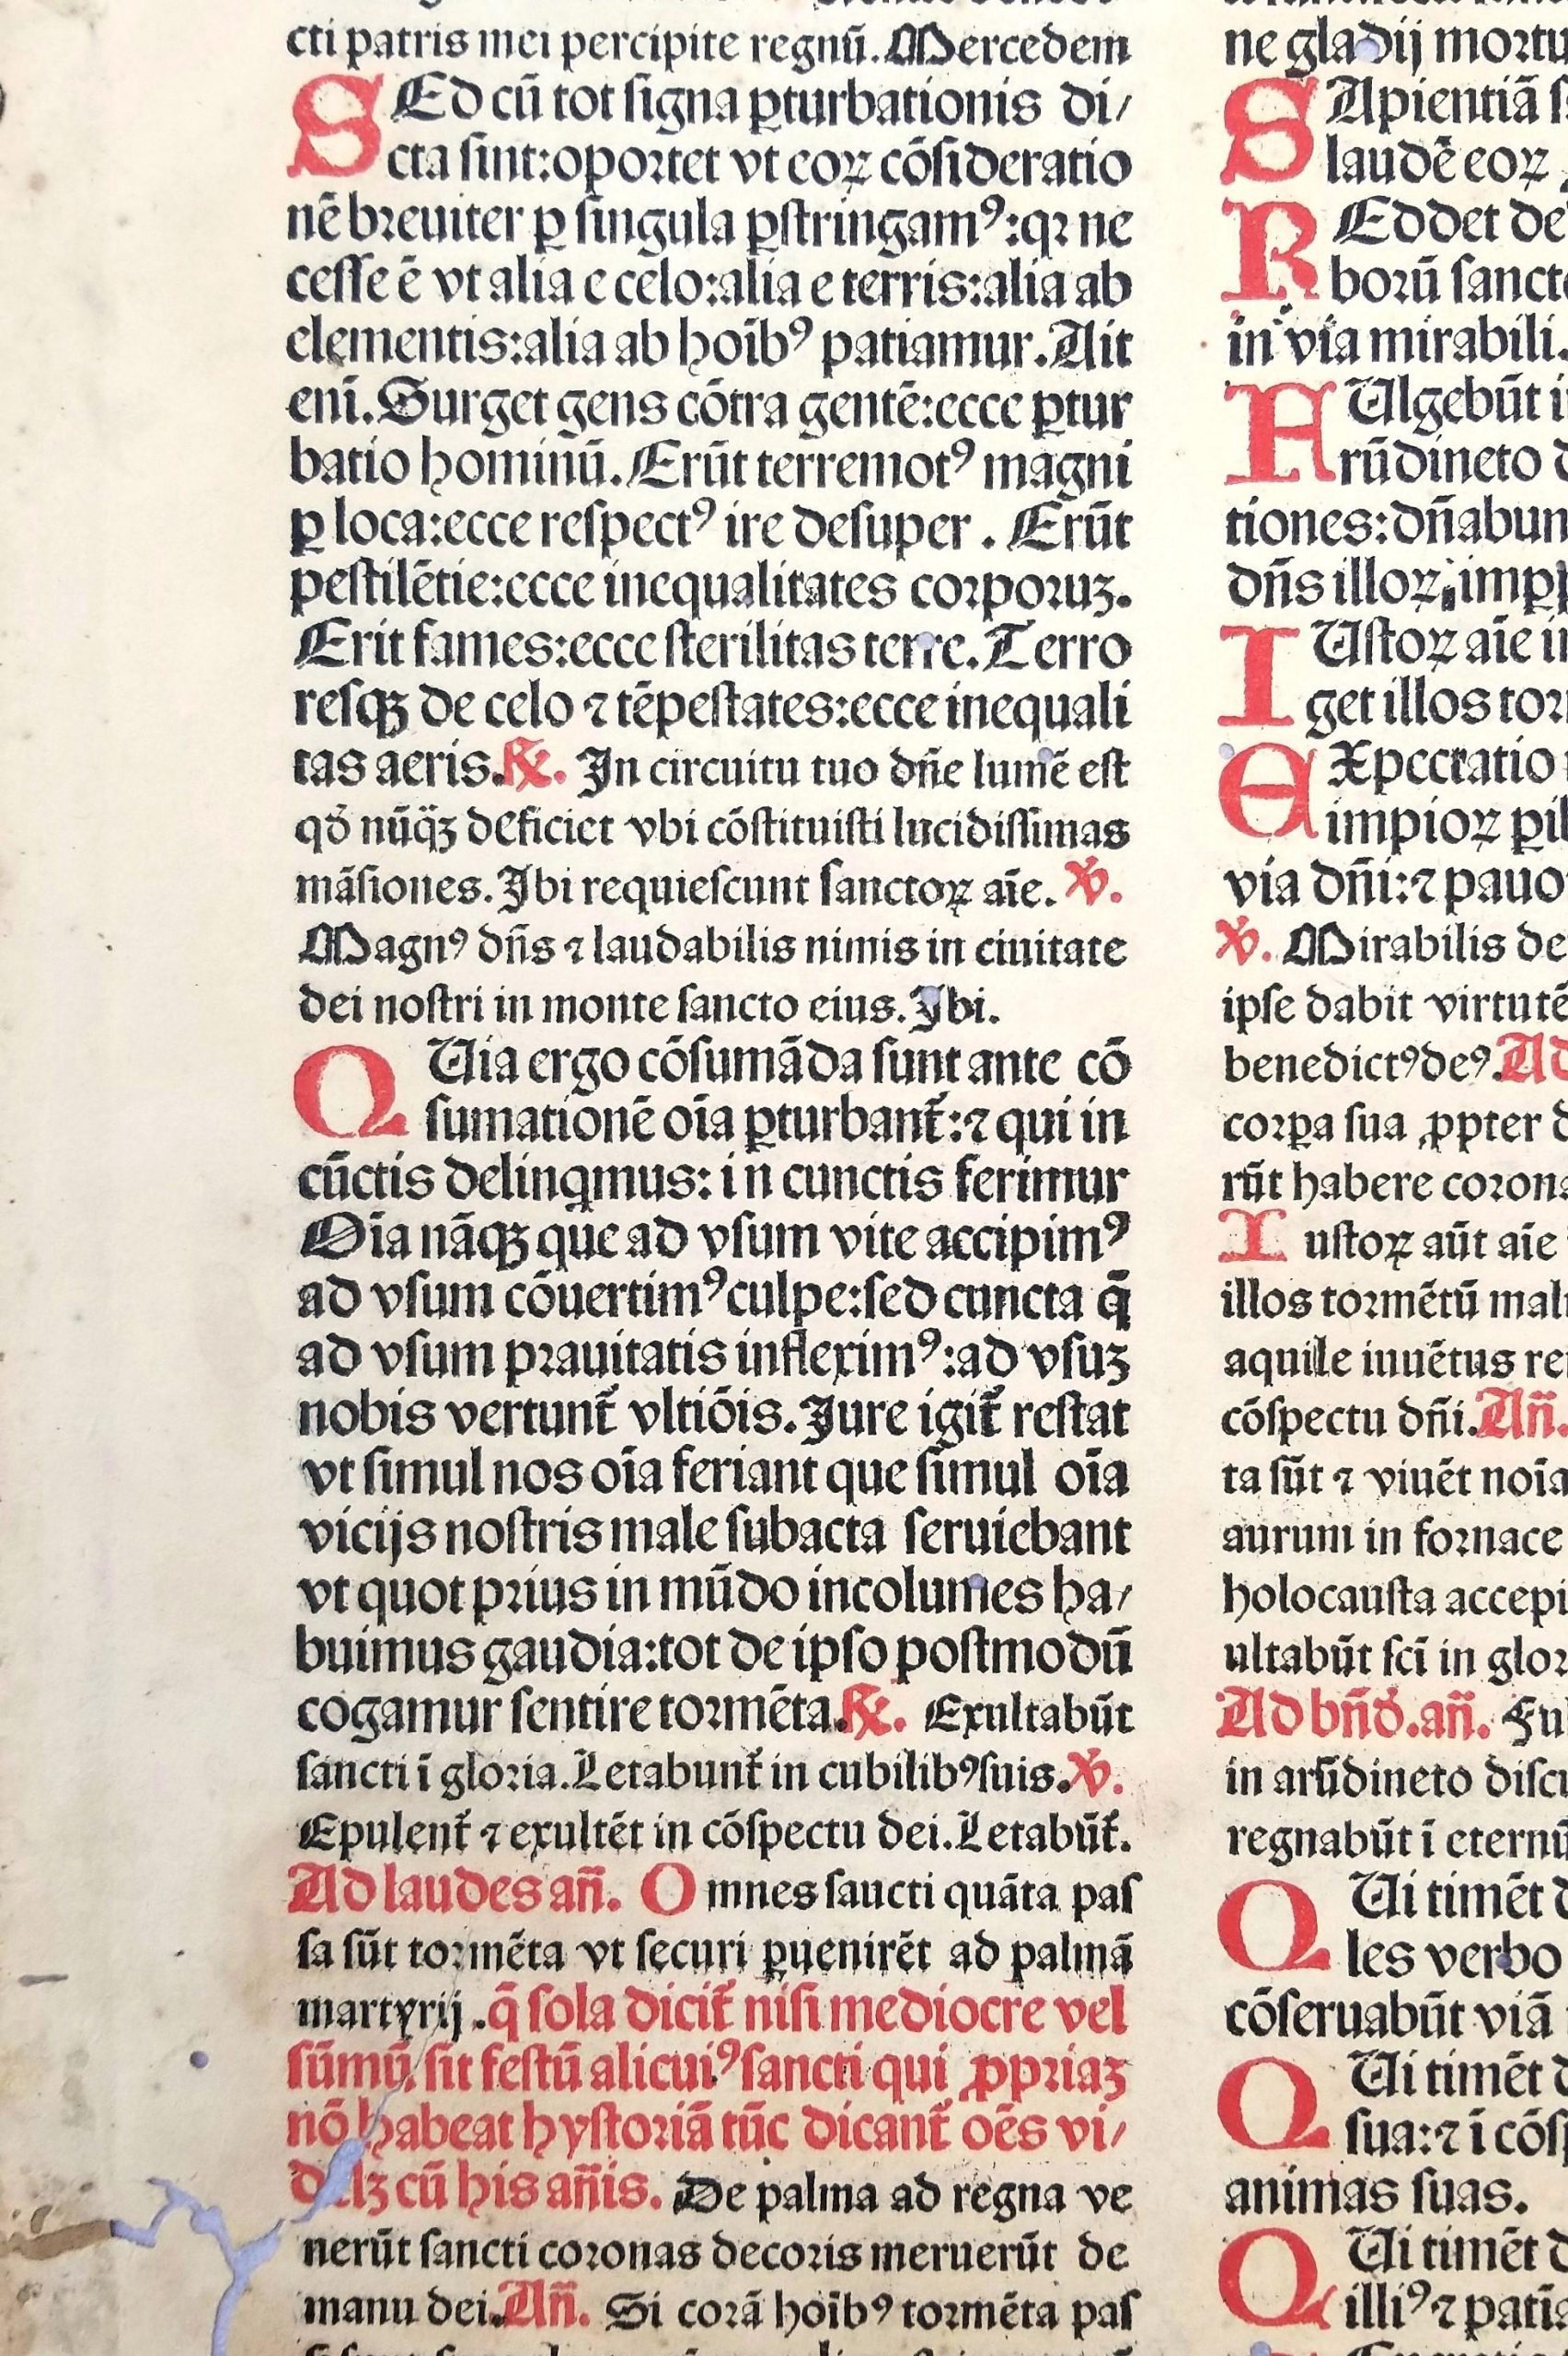 cti patris mei percipite regnū. Mercedem
SEd cū tot signa ꝑturbationis di/
cta sint:oportet vt eoꝝ cōsideratio
nē breuiter ꝑ singula ꝑstringamꝰ:qꝛ ne
cesse ē vt alia e celo:alia e terris:alia ab
elementis:alia ab hoībꝰ patiamur. Ait
eni̅. Surget gens cōtra gentē:ecce ꝑtur
batio hominū. Erūt terremotꝰ magni
ꝑ loca:ecce respectꝰ ire desuper. Erūt
pestilētie:ecce inequalitates corporuꝫ.
Erit fames:ecce sterilitas terre. Terro
resqꝫ de celo ⁊ tēpestates:ecce inequali
tas aeris. ℟. In circuitu tuo dn̄e lumē est
qd̓ nūq̈ꝫ deficiet vbi cōstituisti lucidissimas
māsiones. Ibi requiescunt sanctoꝝ aīe. ℣.
Magnꝰ dn̄s ⁊ laudabilis nimis in ciuitate
dei nostri in monte sancto eius. Ibi.
QUia ergo cōsumāda sunt ante cō
sumationē oīa ꝑturbant̄:⁊ qui in
cūctis delinqmus: in cunctis ferimur
Oīa nāqꝫ que ad vsum vite accipimꝰ
ad vsum cōuertimꝰ culpe:sed cuncta q̄
ad vsum prauitatis infleximꝰ:ad vsuꝫ
nobis vertunt̄ vltiōis. Jure igit̄ restat
vt simul nos oīa feriant que simul oīa
vicijs nostris male subacta seruiebant
vt quot prius in mūdo incolumes ha/
buimus gaudia:tot de ipso postmodū
cogamur sentire tormēta. ℟. Exultabūt
sancti ī gloria. Letabunt̄ in cubilibꝰ suis. ℣.
Epulent̄ ⁊ exultēt in cōspectu dei. Letabūt̄.
Ad laudes an̄. Omnes sancti quāta pas
sa sūt tormēta vt securi ꝑuenirēt ad palmā
martyrij. q̄ sola dicit̄ nisi mediocre vel
sūmū sit festū alicuiꝰ sancti qui ꝓpriaꝫ
nō habeat hystoriā tūc dicant̄ oēs vi/
delꝫ cū his an̄is. De palma ad regna ve
nerūt sancti coronas decoris meruerūt de
manu dei. An̄. Si corā hoībꝰ tormēta pas
ne gladij mortu
SApientiā s
laudē eoꝝ
REddet de
borū sanct
in via mirabili.
FUlgebūt i
rūdineto d
tiones:dn̄abun
dn̄s illoꝝ imꝑp
IUstoꝝ aīe i
get illos tor
EXpectatio
impioꝝ ꝑi
via dn̄i:⁊ pauo
℣. Mirabilis de
ipse dabit virtutē
benedictꝰ deꝰ. Ad
corꝑa sua ꝓpter d
rūt habere corona
Iustoꝝ aūt aīe
illos tormētū mal
aquile iuuētus re
cōspectu dn̄i. An̄.
ta sūt ⁊ viuēt noīa
aurum in fornace
holocausta accepi
ultabūt scī in glor
Ad bn̄d̓. an̄. Fu
in arūdineto disc
regnabūt ī eternū
QUi timēt d
les verbo
cōseruabūt viā
QUi timēt d
sua:⁊ ī cōs
animas suas.
QUi timēt d
illiꝰ ⁊ patiā